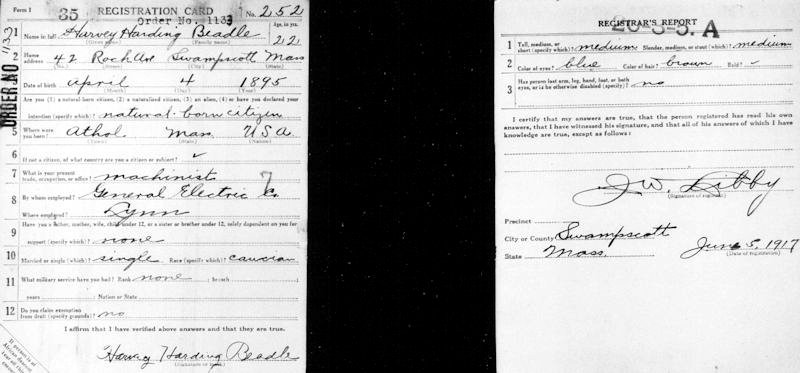 Form 1 35 REGISTRATION CARD No. 252
Order No. 1133
ORDER NO 1133
1 Name in full Harvey Harding Beadle Age, in yrs. 22
(Given name) (Family name)
2 Home address 42 Rock Ave Swampscott Mass
(No.) (Street) (City) (State)
3 Date of birth April 4 1895
(Month) (Day) (Year)
4 Are you (1) a natural-born citizen, (2) a naturalized citizen, (3) an alien, (4) or have you declared your
intention (specify which)? natural-born citizen
5 Where were you born? Athol Mass. USA
(Town) (State) (Nation)
6 If not a citizen, of what country are you a citizen or subject? ✓
7 What is your present trade, occupation, or office? machinist
8 By whom employed? General Electric Co.
Where employed? Lynn
9 Have you a father, mother, wife, child under 12, or a sister or brother under 12, solely dependent on you for
support (specify which)? none
10 Married or single (which)? single Race (specify which)? caucian
11 What military service have you had? Rank none ; branch
years ; Nation or State
12 Do you claim exemption from draft (specify grounds)? no
I affirm that I have verified above answers and that they are true.
Harvey Harding Beadle
If person is of African descent, tear off this
REGISTRAR'S REPORT
A
1 Tall, medium, or short (specify which)? medium Slender, medium, or stout (which)? medium
2 Color of eyes? blue Color of hair? brown Bald? ✓
3 Has person lost arm, leg, hand, foot, or both eyes, or is he otherwise disabled (specify)? no
I certify that my answers are true, that the person registered has read his own
answers, that I have witnessed his signature, and that all of his answers of which I
have knowledge are true, except as follows:
J.W. Libby
(Signature of registrar)
Precinct
City or County Swampscott
State Mass. June 5, 1917
(Date of registration)